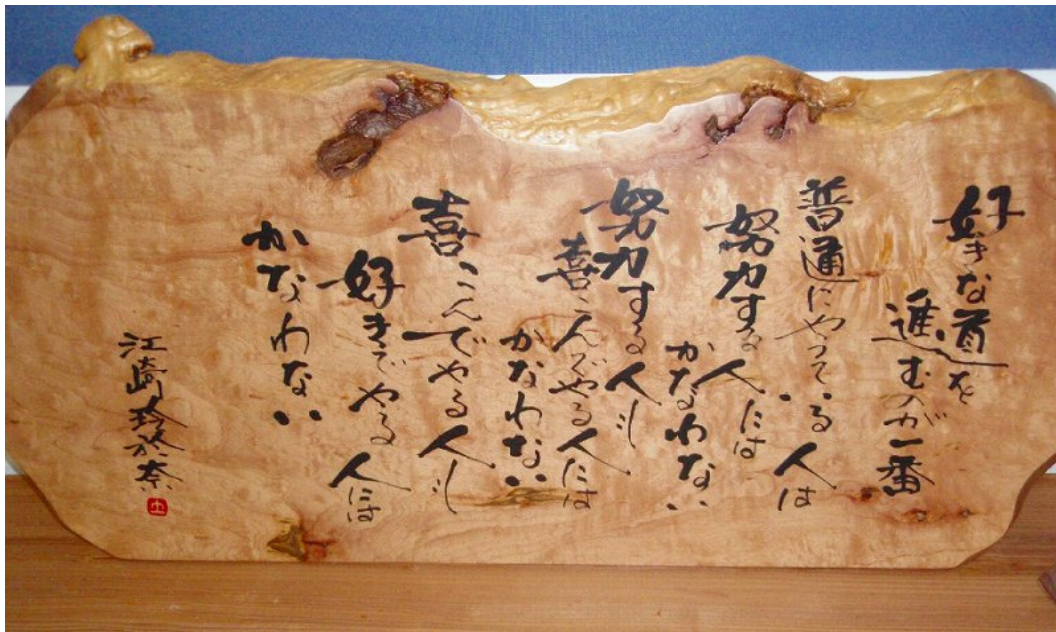 好きな道を
進むのが一番
普通にやっている人は
努力する人には
かなわない
努力する人も
喜こんでやる人には
かなわない
喜こんでやる人も
好きでやる人には
かなわない
江崎玲於奈